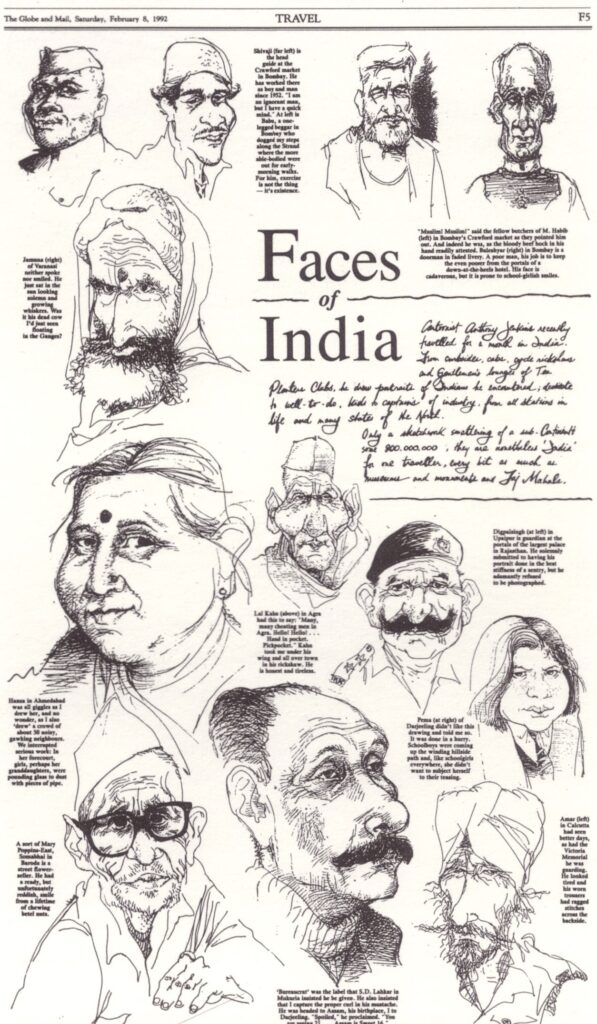 The Globe and Mail, Saturday, February 8, 1992
TRAVEL
F5
Shivaji (far left) is
the head
guide at the
Crawford market
in Bombay. He
has worked there
as boy and man
since 1952. "I am
an ignorant man,
but I have a quick
mind." At left is
Babu, a one-
legged beggar in
Bombay who
dogged my steps
along the Strand
where the more
able-bodied were
out for early-
morning walks.
For him, exercise
is not the thing
— it's existence.
"Muslim! Muslim!" said the fellow butchers of M. Habib
(left) in Bombay's Crawford market as they pointed him
out. And indeed he was, as the bloody beef hock in his
hand readily attested. (right) in Bombay is a
doorman in faded livery. A poor man, his job is to keep
the even poorer from the portals of a
down-at-the-heels hotel. His face is
cadaverous, but it is prone to school-girlish smiles.
Jamuna (right)
of Varanasi
neither spoke
nor smiled. He
just sat in the
sun looking
solemn and
growing
whiskers. Was
it his dead cow
I'd just seen
floating
in the Ganges?
Faces
of
India
Cartoonist Anthony Jenkins recently
travelled for a month in India.
From curbsides, cabs, cycle rickshaws
and Gentlemen's lounges of Tea
Planters Clubs, he drew portraits of Indians he encountered; destitute
to well-to-do, kids to captains of industry, from all stations in
life and many states of the North.
Only a sketchbook smattering of a sub-continent
some 800,000,000, they are nonetheless 'India'
for one traveller, every bit as much as
museums and monuments and Taj Mahals.
Digpalsingh (at left) in
Udaipur is guardian at the
portals of the largest palace
in Rajasthan. He solemnly
submitted to having his
portrait done in the best
stiffness of a sentry, but he
adamantly refused
to be photographed.
Lal Kahn (above) in Agra
had this to say: "Many,
many cheating men in
Agra. Hello! Hello! . . .
Hand in pocket.
Pickpocket." Kahn
took me under his
wing and all over town
in his rickshaw. He
is honest and tireless.
Hansa in Ahmedabad
was all giggles as I
drew her, and no
wonder, as I also
'drew' a crowd of
about 50 noisy,
gawking neighbours.
We interrupted
serious work: In
her forecourt,
girls, perhaps her
granddaughters, were
pounding glass to dust
with pieces of pipe.
Pema (at right) of
Darjeeling didn't like this
drawing and told me so.
It was done in a hurry.
Schoolboys were coming
up the winding hillside
path and, like schoolgirls
everywhere, she didn't
want to subject herself
to their teasing.
A sort of Mary
Poppins-East,
Somabhai in
Baroda is a
street flower-
seller. He had
a ready, but
unfortunately
reddish, smile
from a lifetime
of chewing
betel nuts.
Amar (left)
in Calcutta
had seen
better days,
as had the
Victoria
Memorial
he was
guarding.
He looked
tired and
his worn
trousers
had ragged
stitches
across the
backside.
'Bureaucrat' was the label that S.D. Lahkar in
insisted he be given. He also insisted
that I capture the proper curl in his mustache.
He was headed to Assam, his birthplace, I to
Darjeeling. "Spoiled," he proclaimed. "You